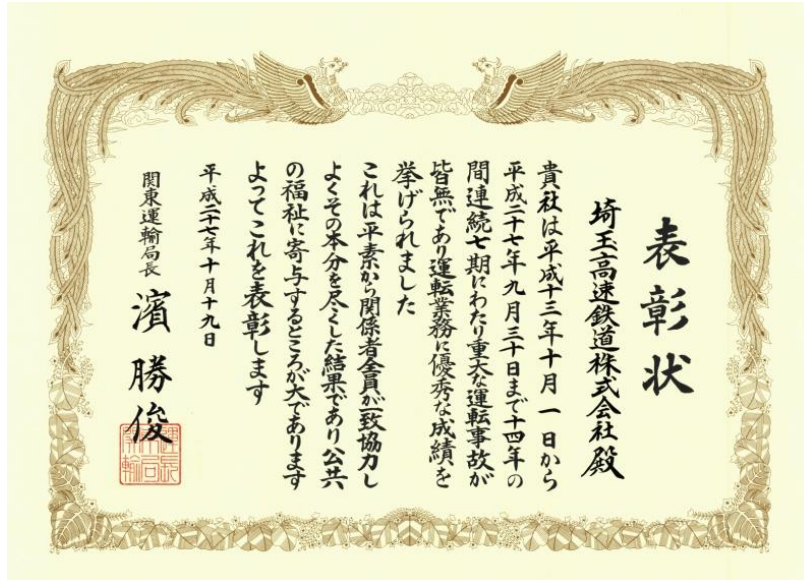 表彰状
埼玉高速鉄道株式会社殿
貴社は平成十三年十月一日から
平成二十七年九月三十日まで十四年の
間連続七期にわたり重大な運転事故が
皆無であり運転業務に優秀な成績を
挙げられました
これは平素から関係者全員が一致協力し
よくその本分を尽くした結果であり公共
の福祉に寄与するところが大であります
よってこれを表彰します
平成二十七年十月十九日
関東運輸局長 濱勝俊